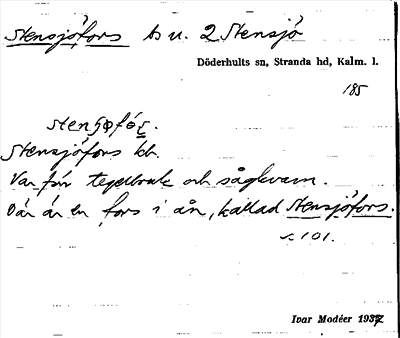 Stensjöfors ts u. 2 Stensjö
Döderhults sn, Stranda hd, Kalm. l.
185
Stensjöfors
Var förr tegelbruk och sågkvarn.
Där är en fors i ån, kallad Stensjöfors.
c 101.
Ivar Modéer 1937